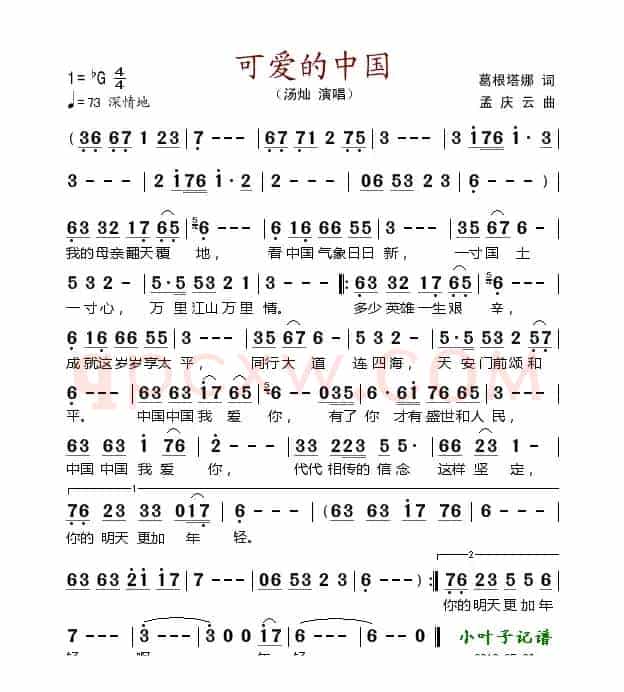 可爱的中国
1=♭G 4/4
葛根塔娜 词
(汤灿 演唱)
♩=73 深情地
孟庆云 曲
(36 67 1 23 | 7 - - - | 67 71 2 75 | 3 - - - | 6 67 1 76 |
3 - - - | 2 176 1·2 | 2 - - - | 06 53 2 3 | 6 - - -)|
63 32 17 65 | 6 - - | 6 16 66 55 | 3 - - - | 35 67 6 -
我的母亲翻天覆 地, 看中国气象日日 新, 一寸国 土
5 3 2 - | 5·5 53 2 | 3 2 - - ‖: 63 32 17 65 | 6 - - -
一寸心, 万里江山万里 情。 多少英雄一生艰 辛,
6 16 66 55 | 3 - - - | 35 67 6 - | 5 3 2 - | 5·5 53 2 57
成就这岁岁享太 平, 同行大 道 连四海, 天安门前颂和
平。 中国中国我 爱 你, 有了你 才有盛世和人民,
63 63 1 76 | 2 - - - | 33 223 5 5· | 66 23 1 -
中国中国我 爱 你, 代代相传的信念 这样坚 定,
1.
76 23 33 017 | 6 - - - | (63 63 1 76 | 6 - 17 76
你的明天更加 年 轻。
63 63 21 17 | 7 - - - | 06 53 2 3 | 6 - - -):‖ 76 23 5 5 6
2.
你的明天更加年
7 - - - | 3 - - - | 3 0 0 17 | 6 - - - | 6 0 0 0‖
小叶子记谱
轻 啊 年 轻